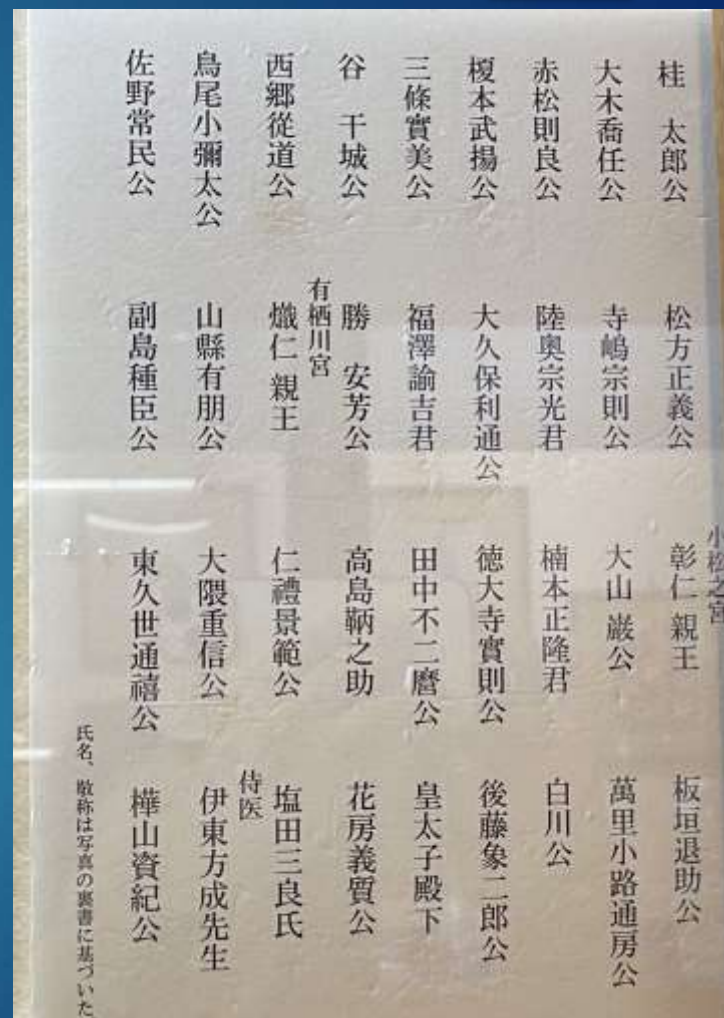 桂 太郎公
大木喬任公
赤松則良公
榎本武揚公
三條實美公
谷 干城公
西郷從道公
鳥尾小彌太公
佐野常民公
松方正義公
寺嶋宗則公
陸奥宗光君
大久保利通公
福澤諭吉君
勝 安芳公
有栖川宮
熾仁 親王
山縣有朋公
副島種臣公
小松之宮
彰仁 親王
大山 巌公
楠本正隆君
徳大寺實則公
田中不二麿公
高島鞆之助
仁禮景範公
大隈重信公
東久世通禧公
板垣退助公
萬里小路通房公
白川公
後藤象二郎公
皇太子殿下
花房義質公
塩田三良氏
侍医
伊東方成先生
樺山資紀公
氏名、敬称は写真の裏書に基づいた